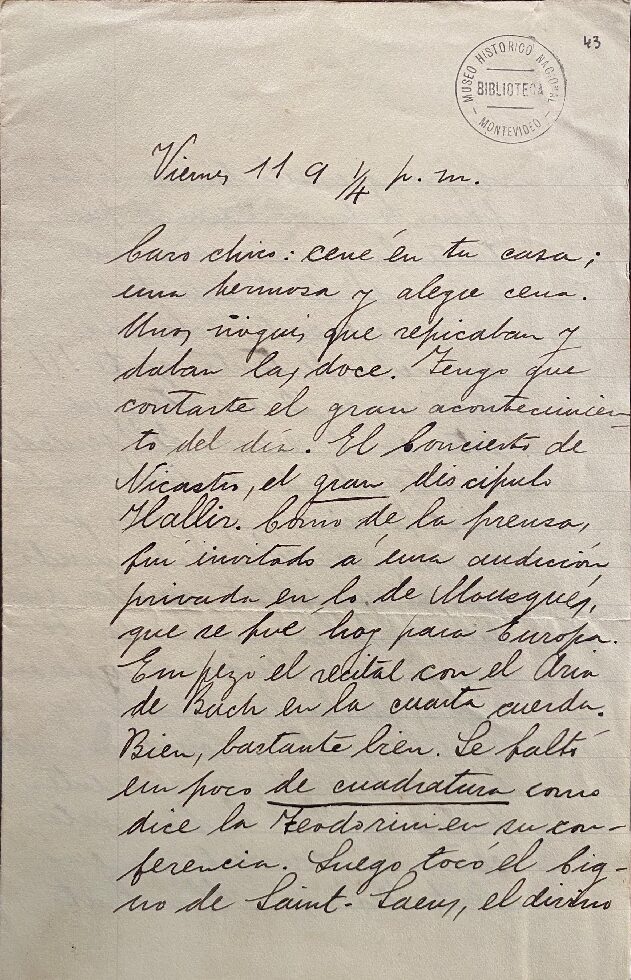 43
MUSEO HISTORICO NACIONAL
BIBLIOTECA
MONTEVIDEO
Viernes 11 9 1/4 p. m.
Caro chico: cené en tu casa;
una hermosa y alegre cena.
Unos ñoquis que repicaban y
daban las doce. Tengo que
contarte el gran acontecimien-
to del día. El Concierto de
Nicastro, el gran discípulo
Hallir. Como de la prensa,
fuí invitado á una audición
privada en lo de Mousqués,
que se fué hoy para Europa.
Empezó el recital con el Aria
de Bach en la cuarta cuerda.
Bien, bastante bien. Le faltó
un poco de cuadratura como
dice la Teodorini en su con-
ferencia. Luego tocó el Cig-
no de Saint-Saens, el divino